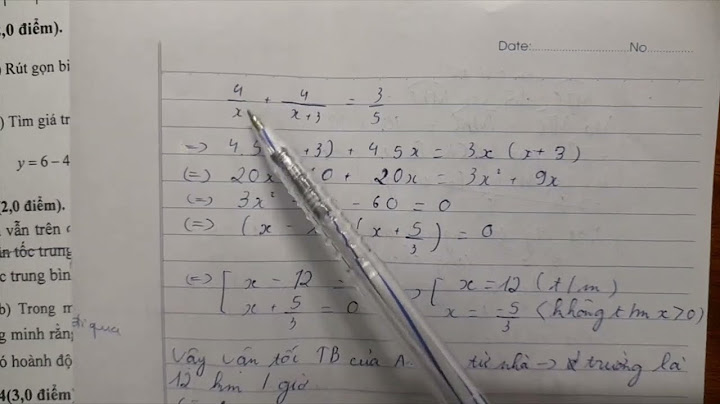 ,0 điểm).
) Rút gọn bi
) Tìm giá tr
y = 6 – 4
(2,0 điểm).
vẫn trên
tốc trung
c trung bìn
b) Trong m
g minh rằng
ó hoành độ
4(3,0 điểm
đi qua
Date: No
4/x + 4/(x+3) = 3/5
=> 4.5 +3) + 4.5x = 3x (x+3)
(=) 20x 0 + 20x = 3x² + 9x
(=) 3x² - 60 = 0
(=) (x - (x + 5/3) = 0
(=) [ x - 12 = [ x = 12 (t/m)
x + 5/3 = 0 x = -5/3 (không t/m x>0)
Vậy vận tốc TB của A từ nhà -> trường là
12 km / giờ.